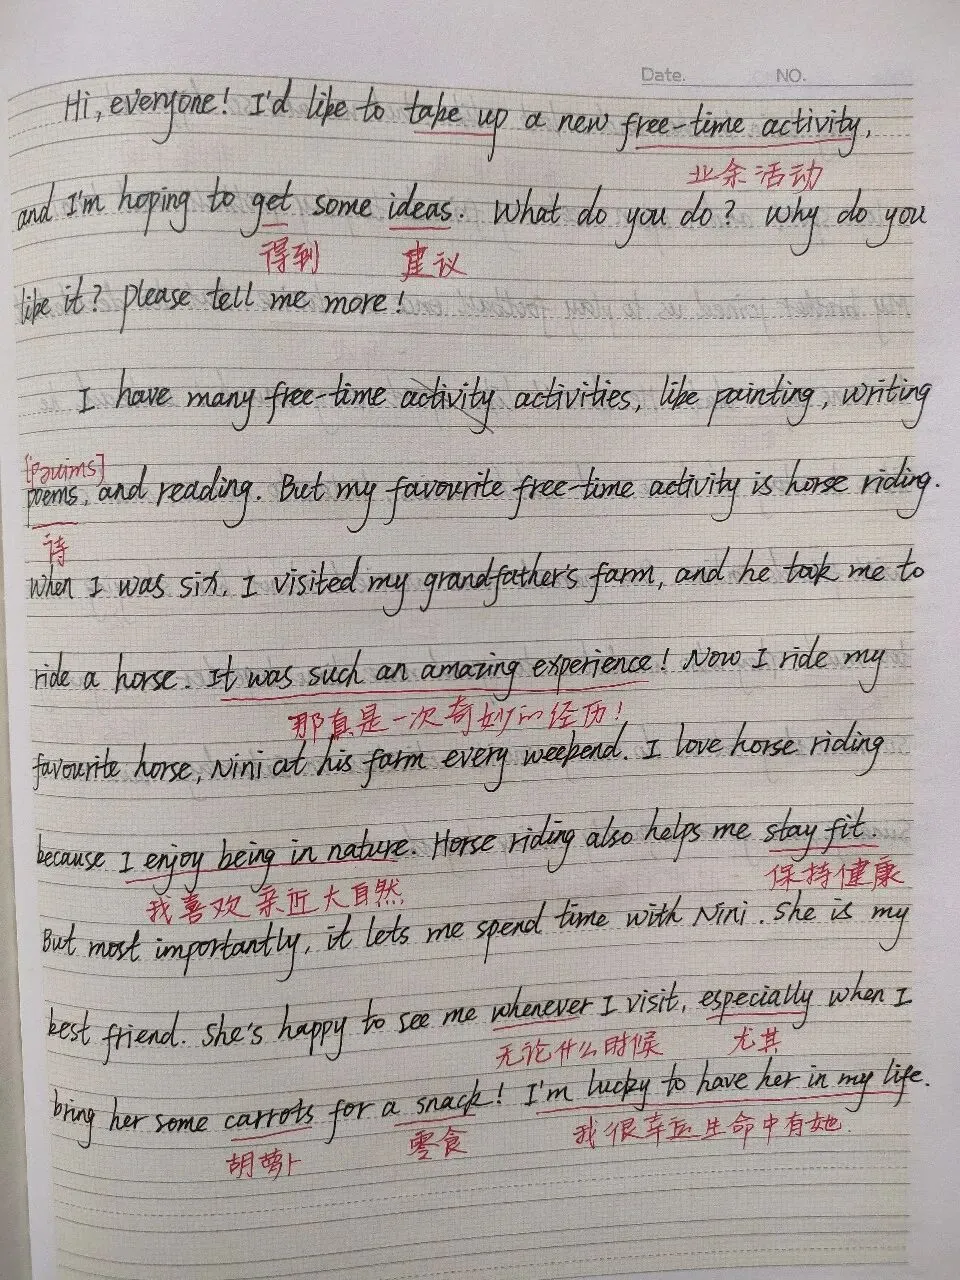 Date. NO.
Hi, everyone! I'd like to take up a new free-time activity,
业余活动
and I'm hoping to get some ideas. What do you do? Why do you
得到 建议
like it? Please tell me more!
I have many free-time activity activities, like painting, writing
[pəuims]
poems, and reading. But my favourite free-time activity is horse riding.
诗
When I was six, I visited my grandfather's farm, and he took me to
ride a horse. It was such an amazing experience! Now I ride my
那真是一次奇妙的经历!
favourite horse, Nini at his farm every weekend. I love horse riding
because I enjoy being in nature. Horse riding also helps me stay fit.
我喜欢亲近大自然 保持健康
But most importantly, it lets me spend time with Nini. She is my
best friend. She's happy to see me whenever I visit, especially when I
无论什么时候 尤其
bring her some carrots for a snack! I'm lucky to have her in my life.
胡萝卜 零食 我很幸运生命中有她